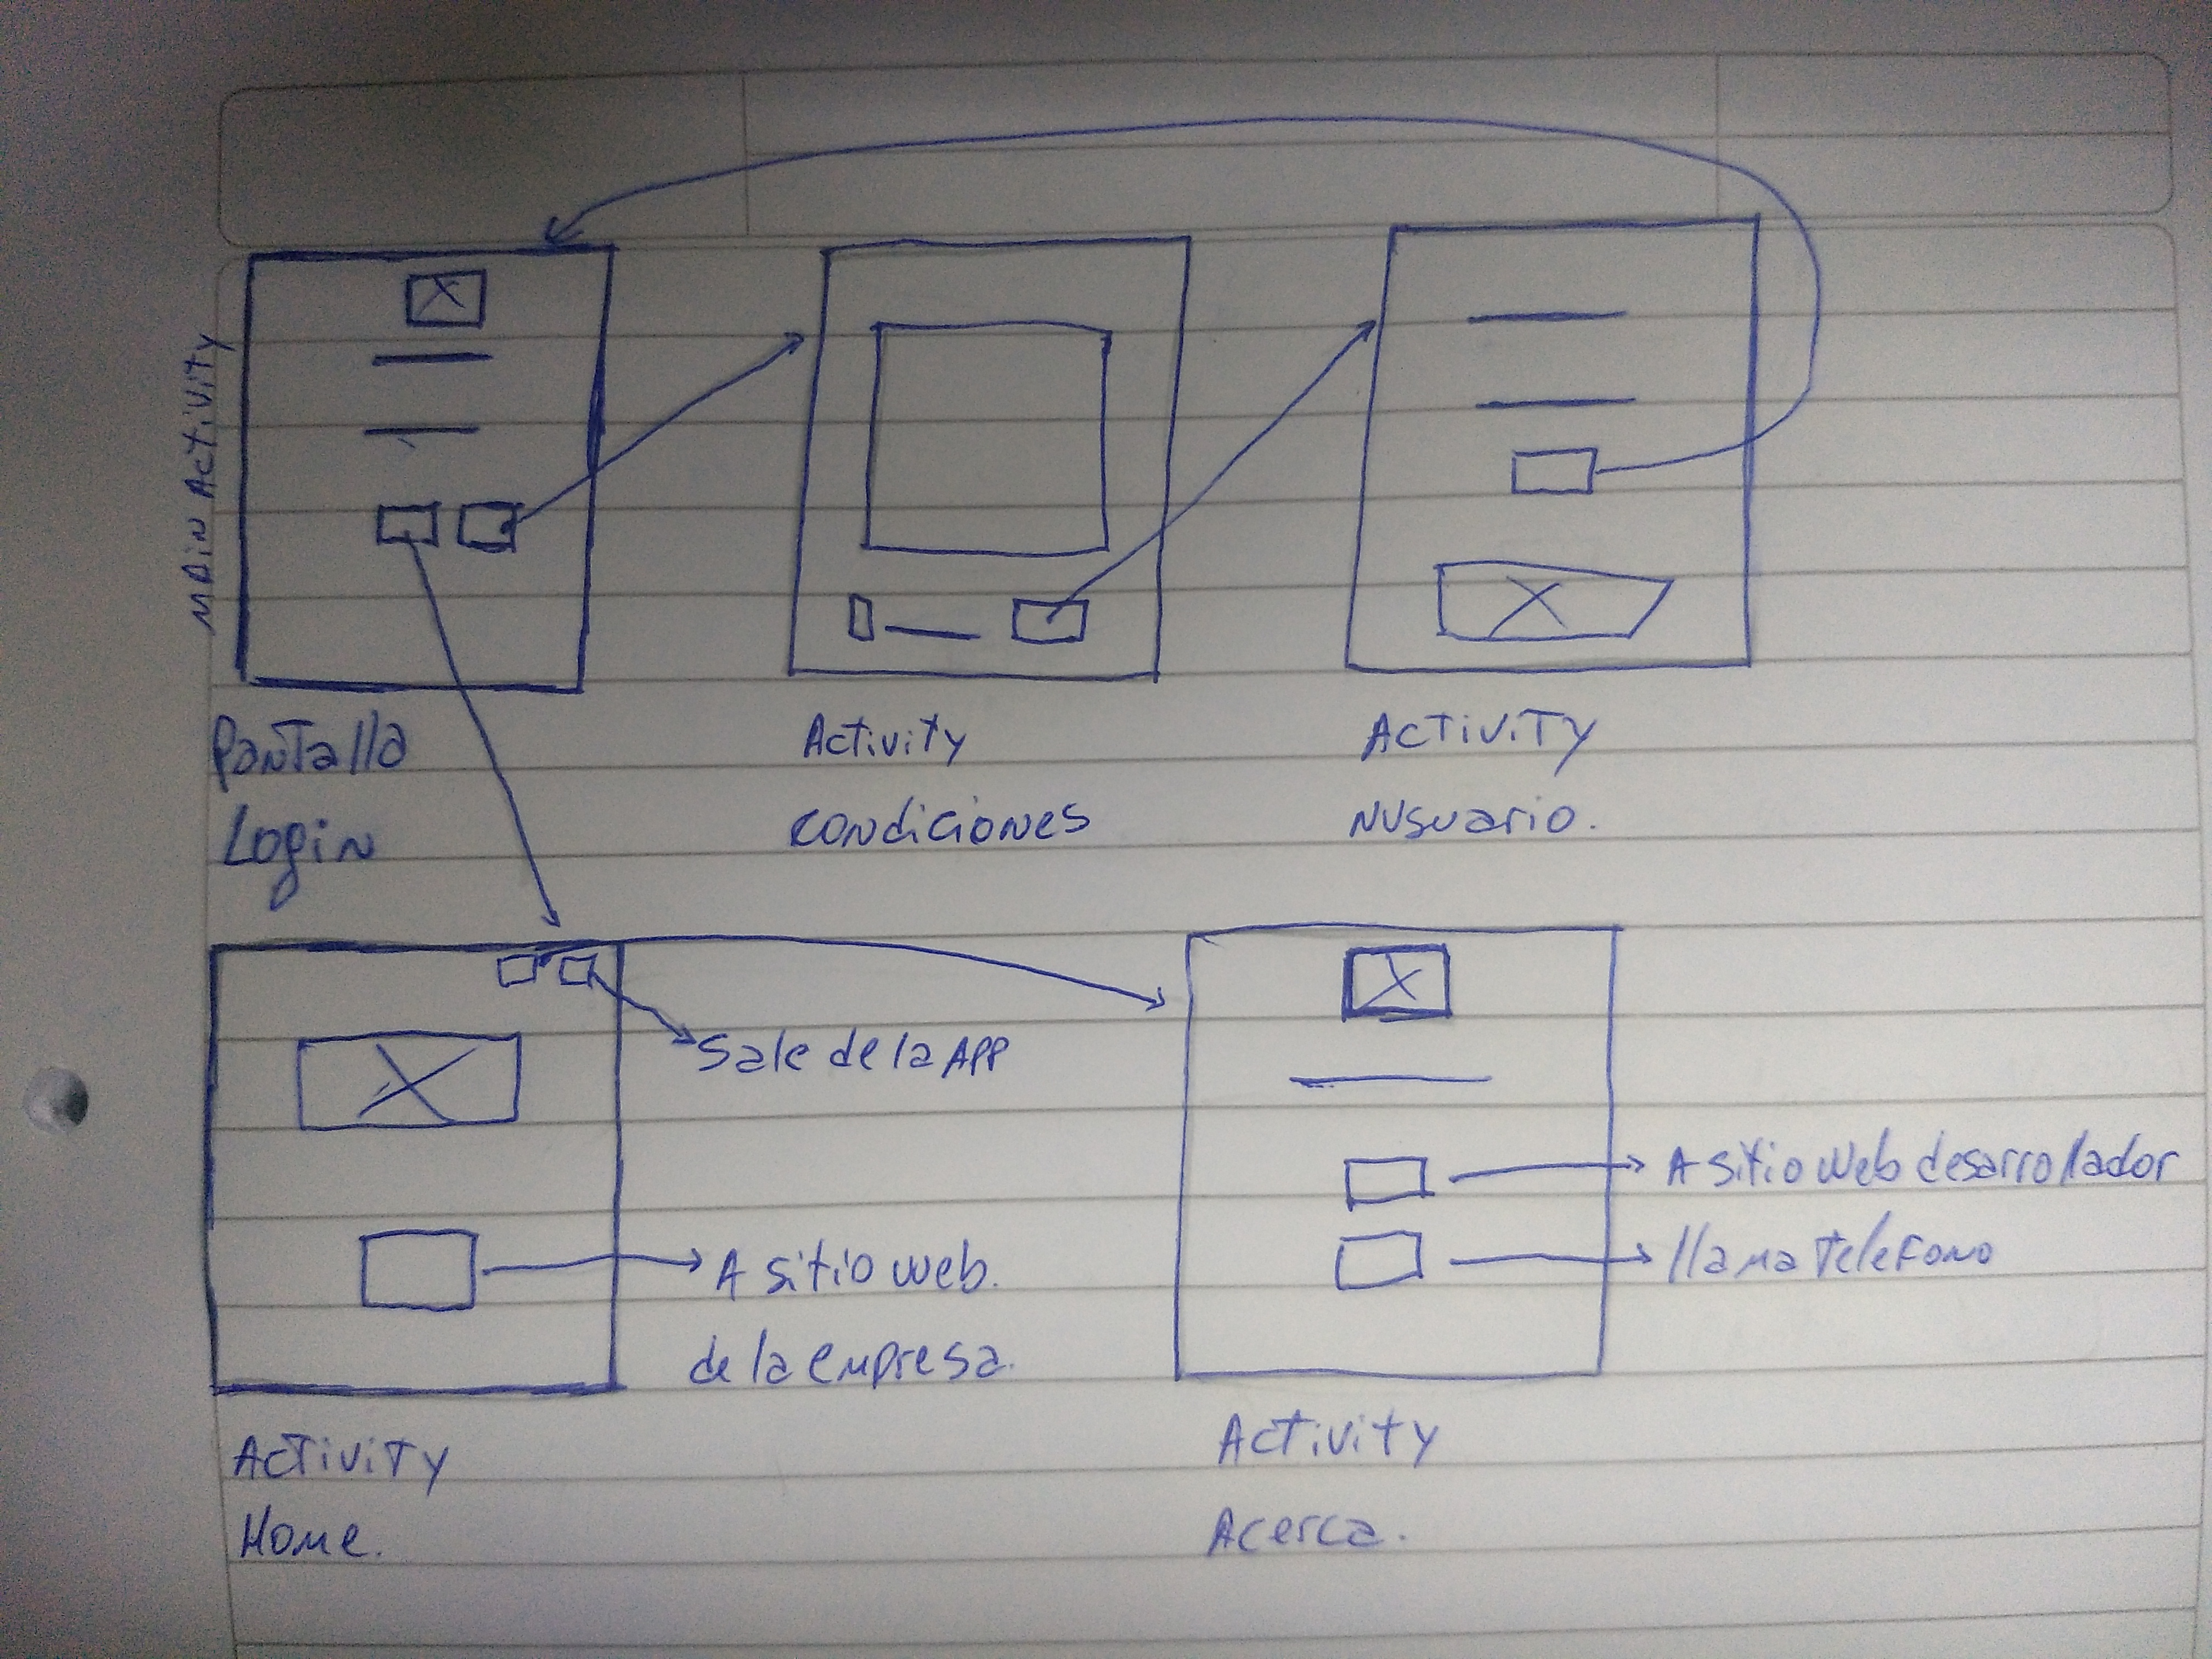 MAIN ACTIVITY
Pantalla
Login
Activity
condiciones
ACTIVITY
NUSUARIO.
Sale de la APP
A sitio web.
de la empresa.
A sitio web desarrollador
llama telefono
ACTIVITY
Home.
Activity
Acerca.